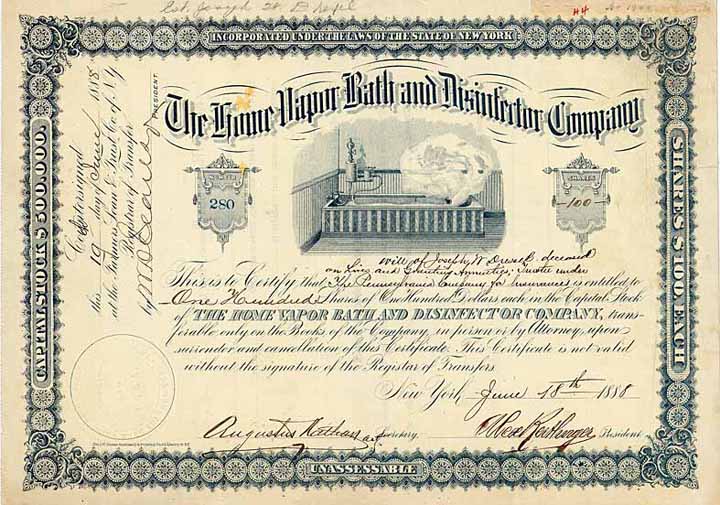 INCORPORATED UNDER THE LAWS OF THE STATE OF NEW YORK
The Home Vapor Bath and Disinfector Company
NUMBER
280
SHARES
100
CAPITAL STOCK $500,000.
SHARES $100. EACH
Countersigned
this 19 day of June 1888
at the Farmers Loan & Trust Co. of N.Y.
Registrar of Transfer
by
PRESIDENT.
will of Joseph W Drexel deceased
on Lives and Granting Annuities, Trustee under
This is to Certify that The Pennsylvania Company for Insurances is entitled to
One Hundred Shares of One Hundred Dollars each in the Capital Stock
of THE HOME VAPOR BATH AND DISINFECTOR COMPANY, trans-
ferable only on the Books of the Company, in person or by Attorney, upon
surrender and cancellation of this Certificate. This Certificate is not valid
without the signature of the Registrar of Transfers
New York, June 18th 1888
Augustus Nathan
Secretary.
President
UNASSESSABLE